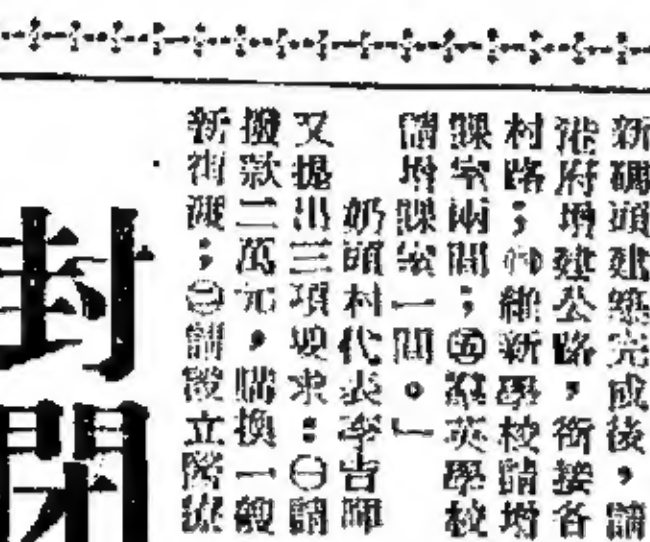 新碼頭建築完成後，請
港府增建公路，衔接各
村路；㈣維新學校請增
課室兩間；㊄羣英學校
請增課室一間。」
奶頭村代表李吉暉
又提出三項要求：㊀請
撥款二萬元，購換一艘
新街渡；㊁請設立醫療
封閉